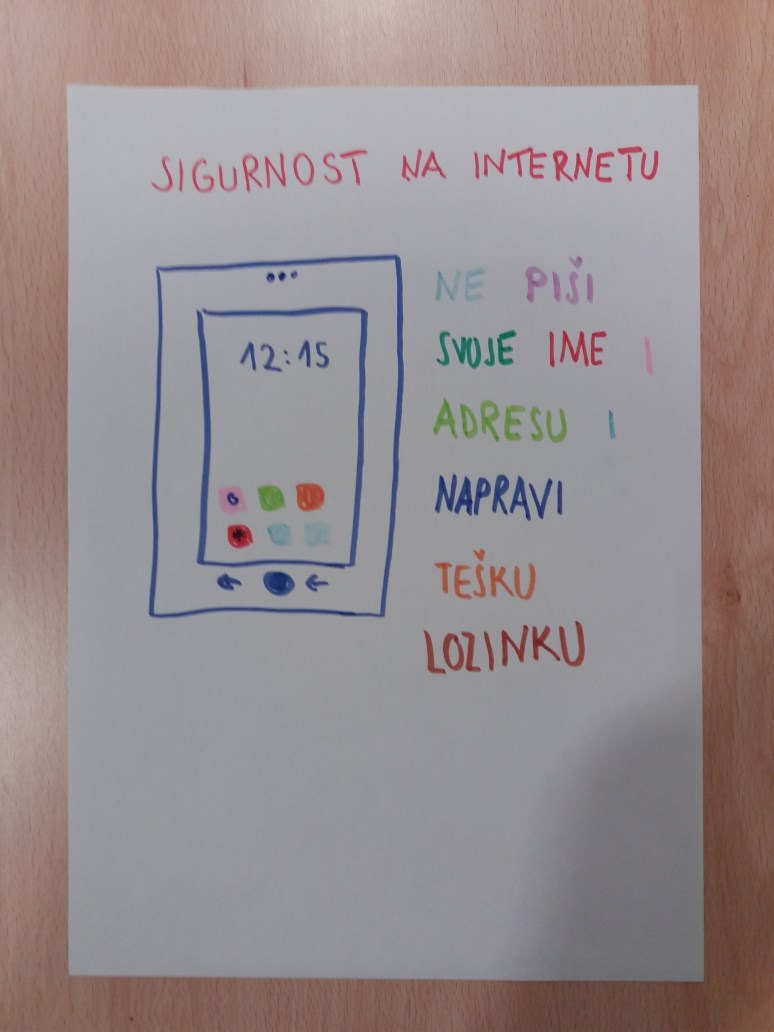 SIGURNOST NA INTERNETU
12:15
NE PIŠI
SVOJE IME I
ADRESU I
NAPRAVI
TEŠKU
LOZINKU